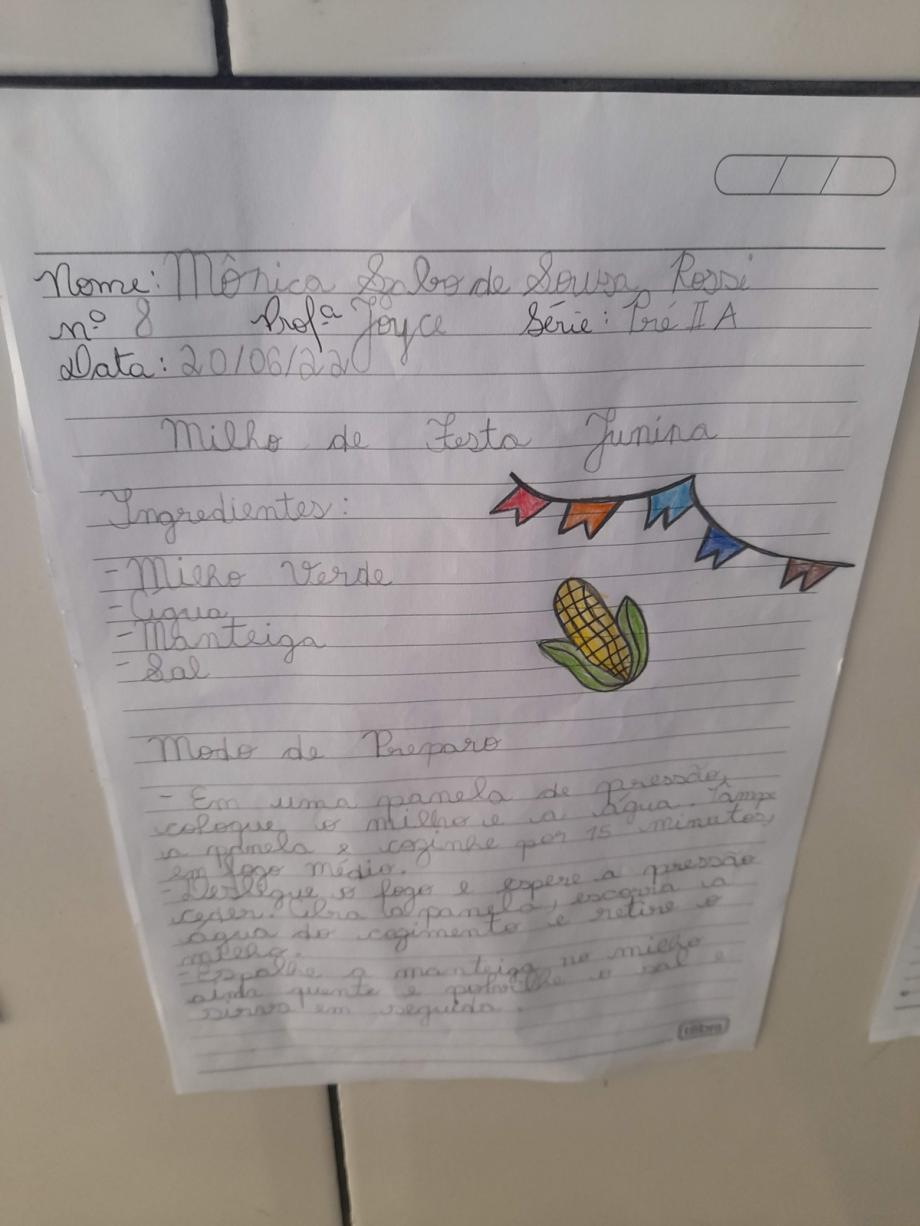 Nome: Mônica Salbo de Sousa Rossi
nº 8 Profª Joyce Série: Pré II A
Data: 20/06/22
Milho de Festa Junina
Ingredientes:
- Milho Verde
- Água
- Manteiga
- Sal
Modo de Preparo
- Em uma panela de pressão,
coloque o milho e a água. Tampe
a panela e cozinhe por 15 minutos,
em fogo médio.
- Desligue o fogo e espere a pressão
ceder. Abra a panela, escorra a
água do cozimento e retire o
milho.
- Espalhe a manteiga no milho
ainda quente e polvilhe o sal e
sirva em seguida.
tilibra